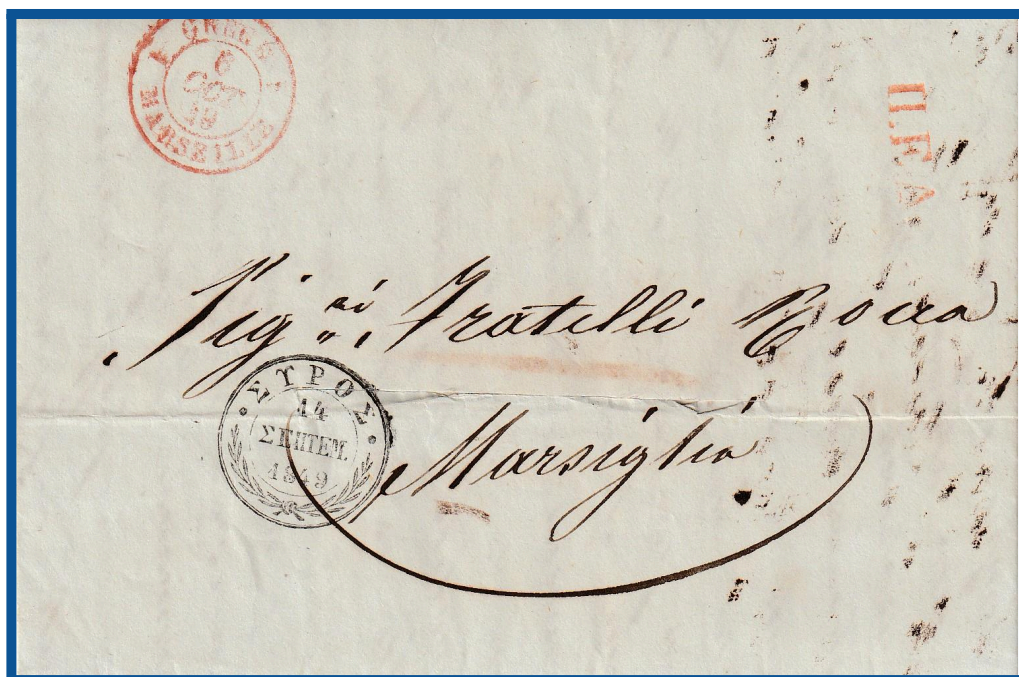 GRÈCE
6
OCT
49
MARSEILLE
Π.Γ.Α.
Sig.ri Fratelli Rocca
ΣΥΡΟΣ
14
ΣΕΠΤΕΜ.
1849
Marsiglia